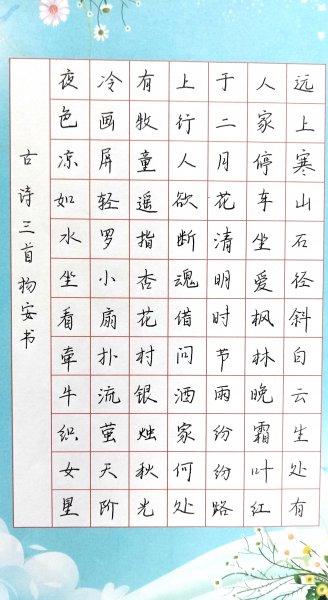 远上寒山石径斜白云生处有
人家停车坐爱枫林晚霜叶红
于二月花清明时节雨纷纷路
上行人欲断魂借问酒家何处
有牧童遥指杏花村银烛秋光
冷画屏轻罗小扇扑流萤天阶
夜色凉如水坐看牵牛织女星
古诗三首杨安书